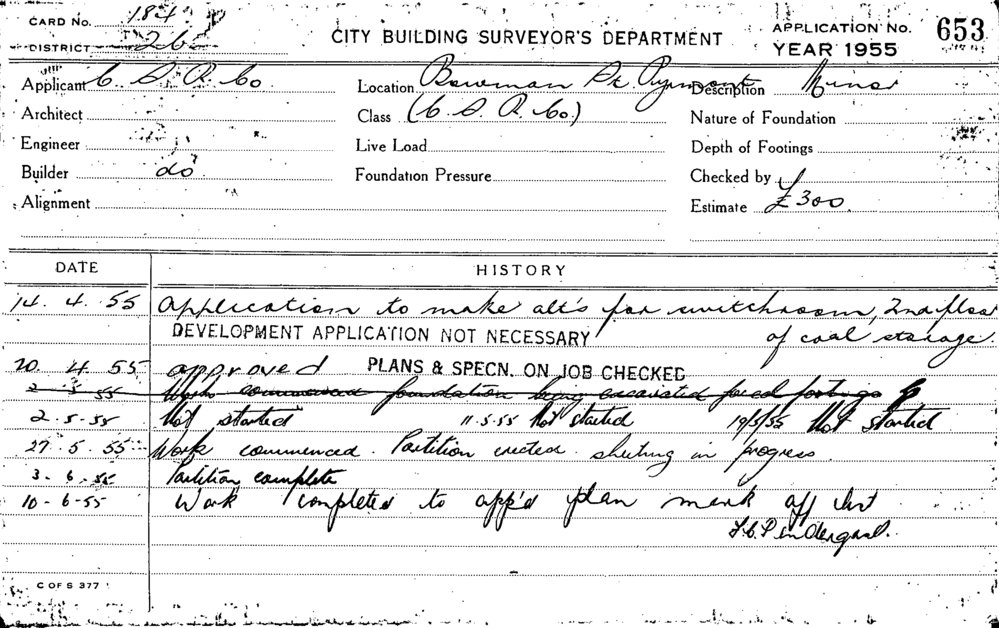 CARD No. 184
DISTRICT 26
CITY BUILDING SURVEYOR'S DEPARTMENT
APPLICATION No. 653
YEAR 1955
Applicant C. S. R. Co
Location Bowman St. Pyrmont
Description Minor
Architect
Class (C. S. R. Co.)
Nature of Foundation
Engineer
Live Load
Depth of Footings
Builder do
Foundation Pressure
Checked by
Alignment
Estimate £300.
DATE
HISTORY
14. 4. 55 Application to make alt's for switchroom, 2nd floor
of coal storage.
DEVELOPMENT APPLICATION NOT NECESSARY
20 4. 55 approved PLANS & SPECN. ON JOB CHECKED
2 5 55 Works commenced foundation being excavated footings
2. 5. 55 Not started 11. 5. 55 Not started 19/5/55 Not started
27. 5. 55 Work commenced. Partition erected. sheeting in progress
3. 6. 55 Partition complete
10-6-55 Work completed to app'd plan mark off
C OF S 377